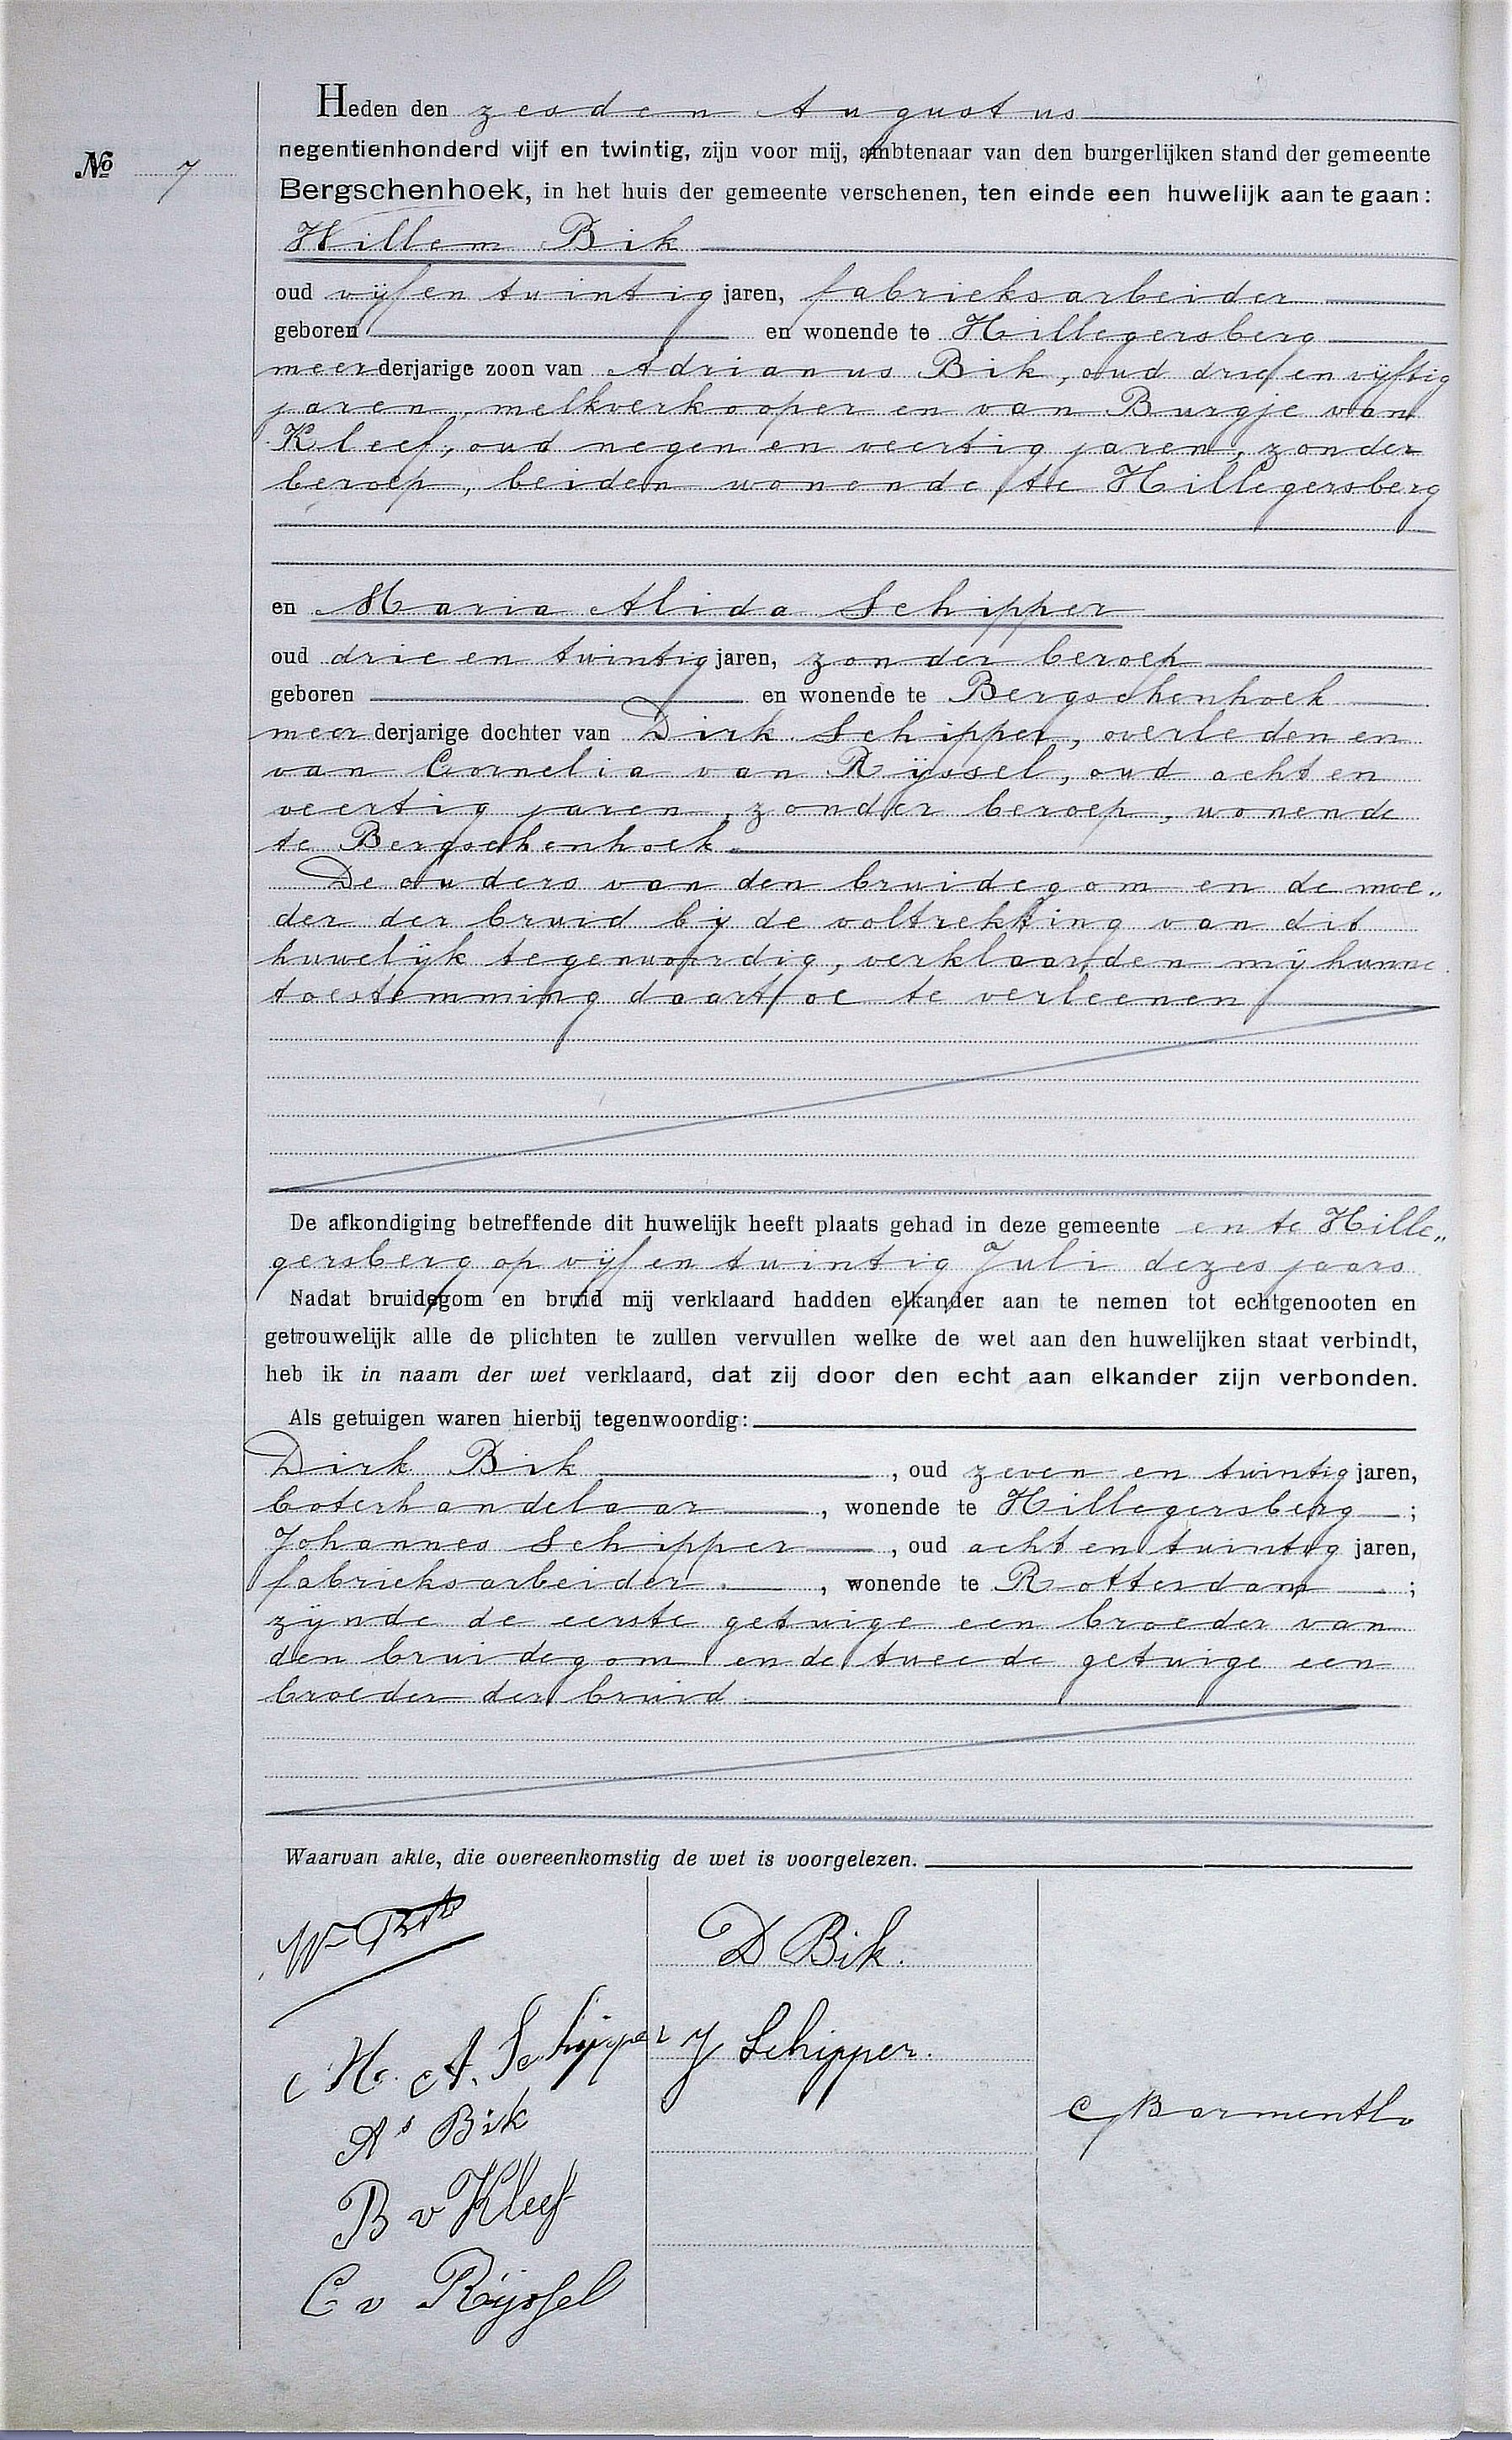 Heden den zesden Augustus
negentienhonderd vijf en twintig, zijn voor mij, ambtenaar van den burgerlijken stand der gemeente
No 7
Bergschenhoek, in het huis der gemeente verschenen, ten einde een huwelijk aan te gaan:
Willem Bik
oud vijf en twintig jaren, fabrieksarbeider
geboren en wonende te Hillegersberg
meerderjarige zoon van Adrianus Bik, oud drie en vijftig
jaren, melkverkooper en van Burgje van
Kleef, oud negen en veertig jaren, zonder
beroep, beiden wonende te Hillegersberg
en Maria Alida Schipper
oud drie en twintig jaren, zonder beroep
geboren en wonende te Bergschenhoek
meerderjarige dochter van Dirk Schipper, overleden en
van Cornelia van Rijssel, oud acht en
veertig jaren, zonder beroep, wonende
te Bergschenhoek.
De ouders van den bruidegom en de moe„
der der bruid bij de voltrekking van dit
huwelijk tegenwoordig, verklaarden mij hunne
toestemming daartoe te verleenen
De afkondiging betreffende dit huwelijk heeft plaats gehad in deze gemeente en te Hille„
gersberg op vijf en twintig Juli dezes jaars
Nadat bruidegom en bruid mij verklaard hadden elkander aan te nemen tot echtgenooten en
getrouwelijk alle de plichten te zullen vervullen welke de wet aan den huwelijken staat verbindt,
heb ik in naam der wet verklaard, dat zij door den echt aan elkander zijn verbonden.
Als getuigen waren hierbij tegenwoordig:
Dirk Bik, oud zeven en twintig jaren,
boterhandelaar, wonende te Hillegersberg;
Johannes Schipper, oud acht en twintig jaren,
fabrieksarbeider, wonende te Rotterdam;
zijnde de eerste getuige een broeder van
den bruidegom en de tweede getuige een
broeder der bruid
Waarvan akte, die overeenkomstig de wet is voorgelezen.
Wm Bik
D Bik.
M. A. Schipper
J Schipper.
As Bik
C Barmentlo
B v Kleef
C v Rijssel